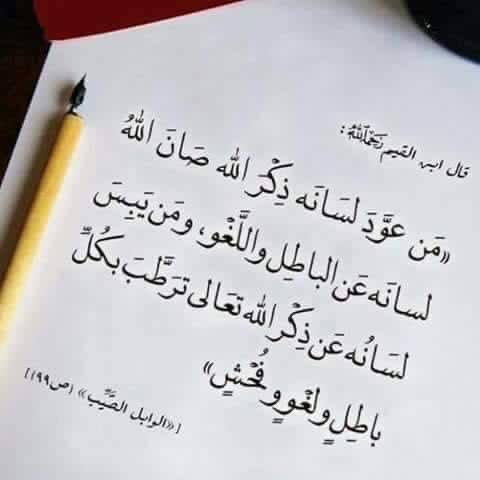 قال ابن القيم رَحِمَهُ اللهُ :
«مَن عوَّدَ لسَانَه ذِكْرَ الله صَانَ اللهُ
لسانَه عَن الباطِل واللَّغْو، ومَن يَبِسَ
لسَانُه عَن ذِكْر الله تعَالى ترَطَّبَ بكُلِّ
باطِلٍ ولغوٍ وفُحْشٍ»
[«الوابل الصَّيِّب» (ص٩٩)]